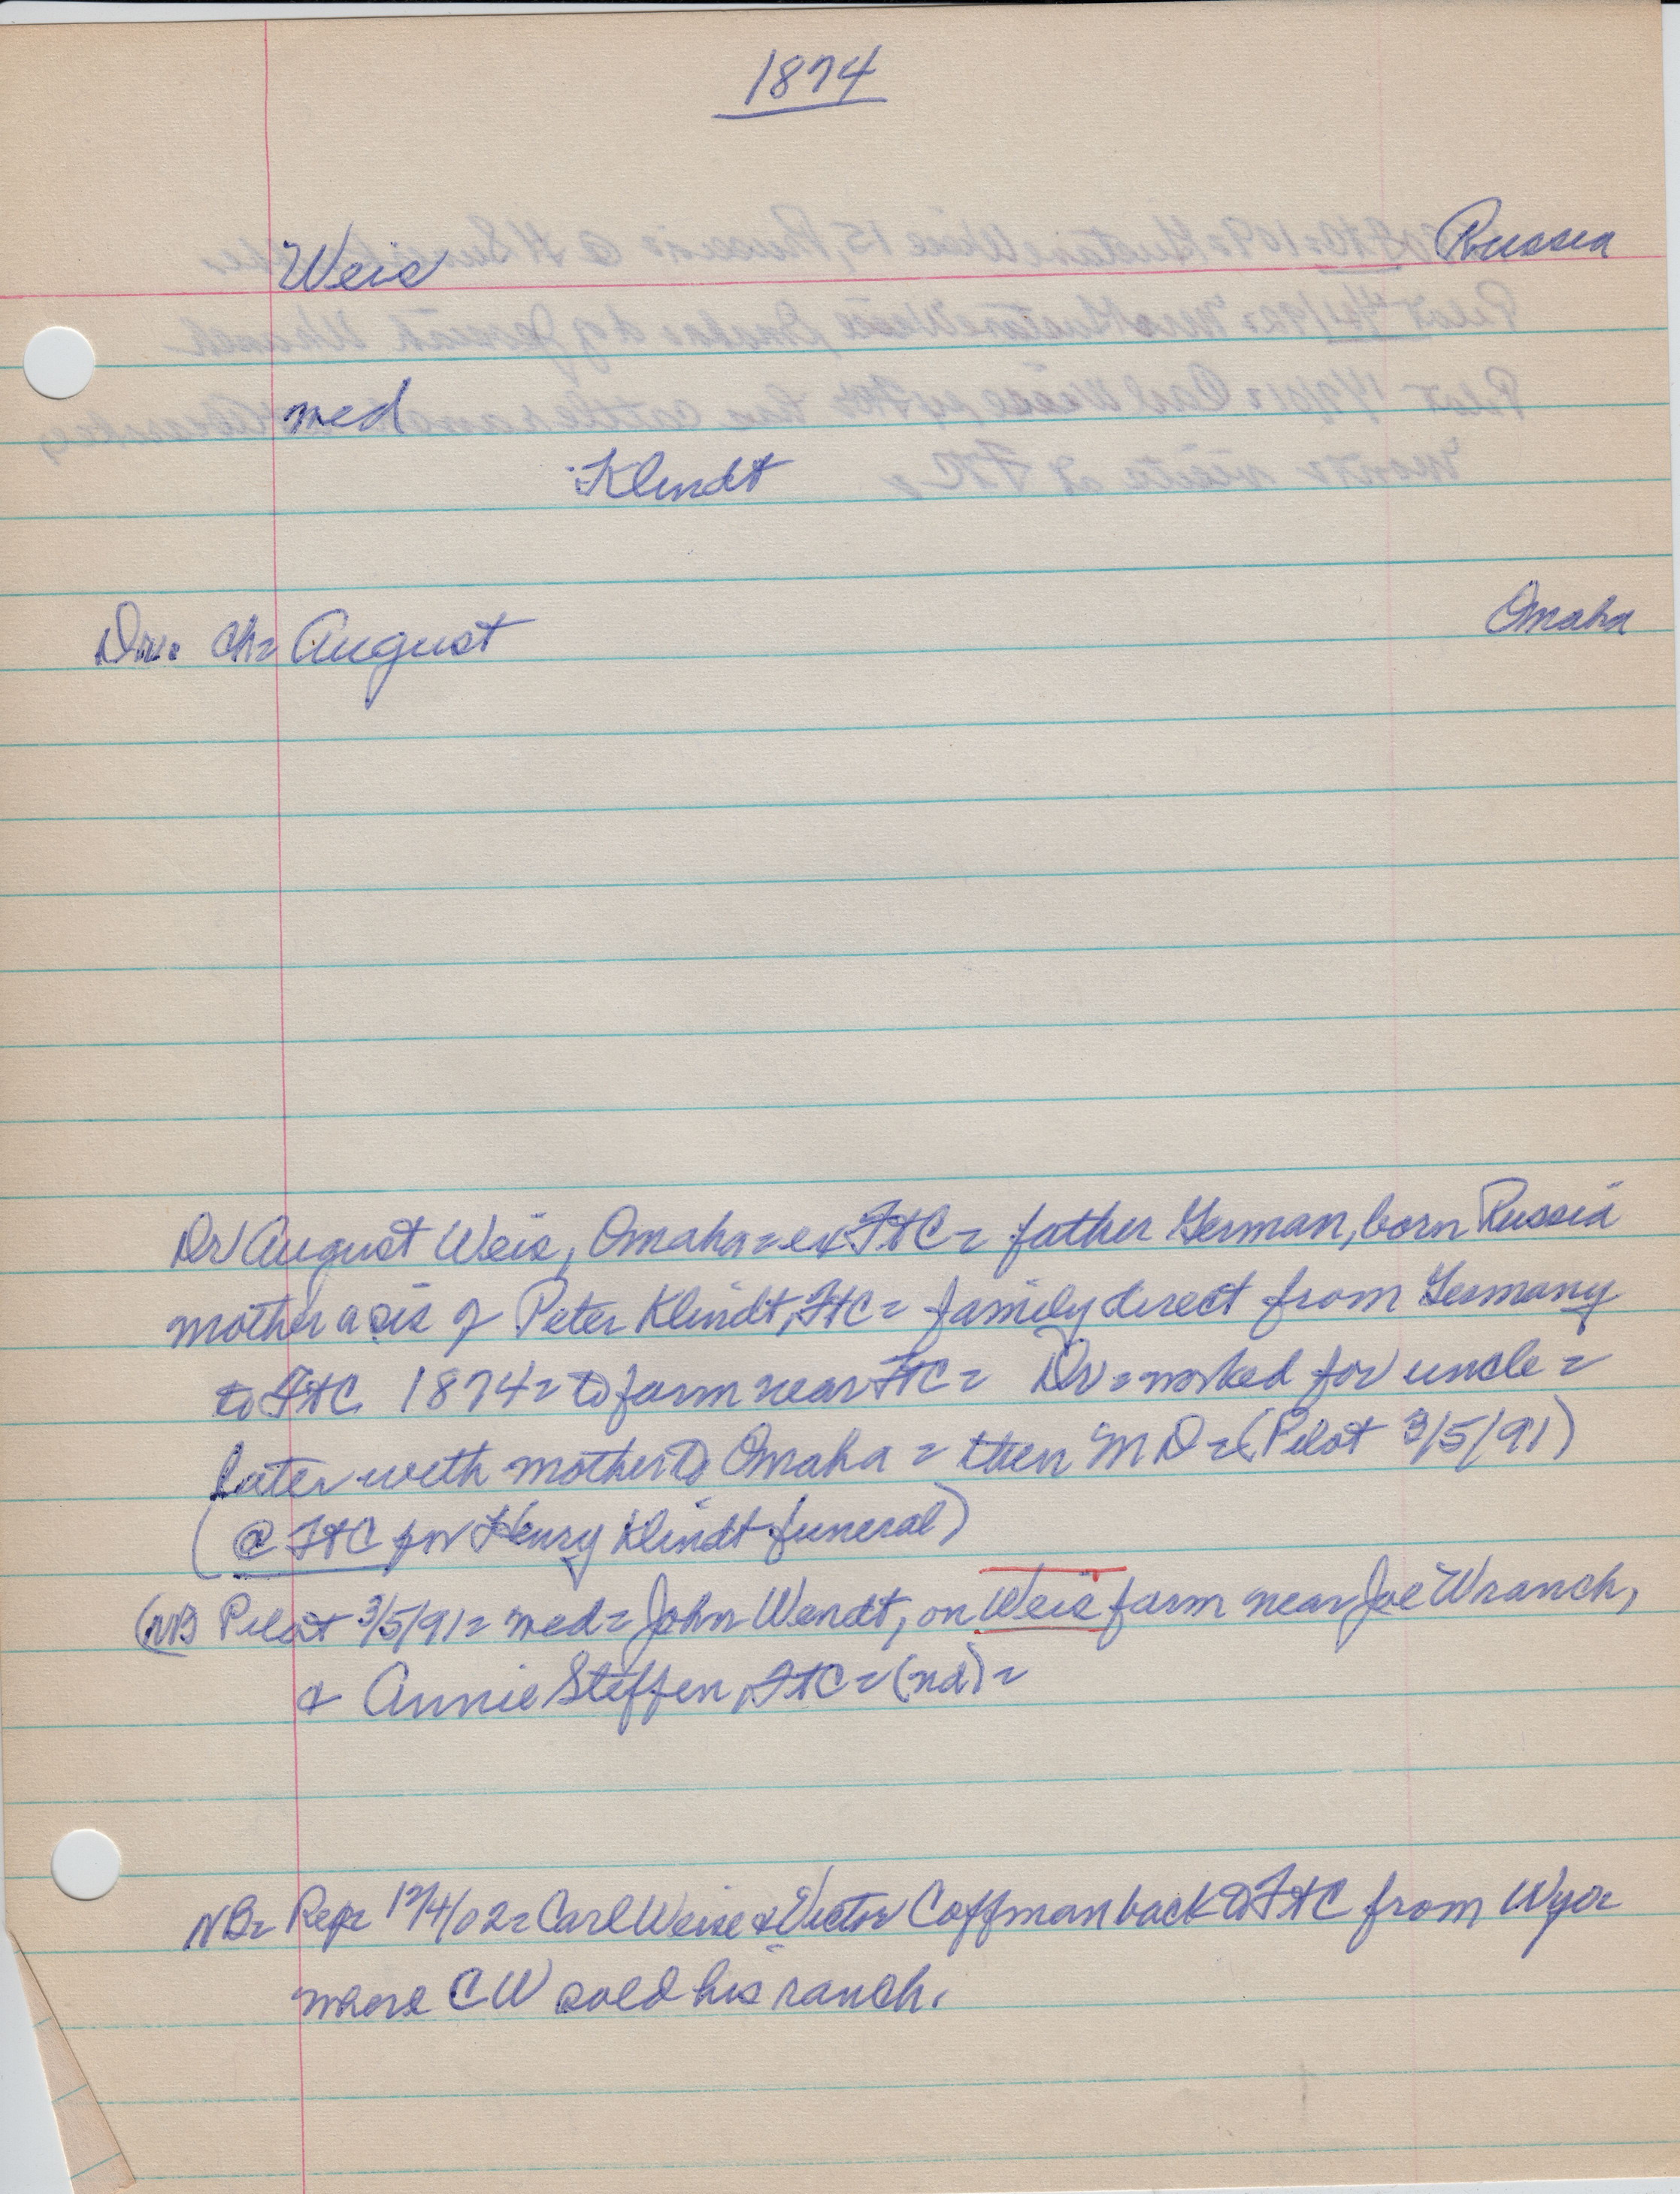 1874
Weis Russia
med
Klindt
Dr. ch= August Omaha
Dr August Weis, Omaha = ex FtC = father German, born Russia
mother a sis of Peter Klindt, FtC = family direct from Germany
to FtC 1874 = to farm near FtC = Dr = worked for uncle =
later with mother to Omaha = then MD = (Pilot 3/5/91)
(@ FtC for Henry Klindt funeral)
(NB Pilot 3/5/91 = med = John Wendt, on Weis farm near Joe Wranch,
& Annie Steffen, FtC = (nd) =
NB= Rep= 12/4/02 = Carl Weise & Victor Coffman back to FtC from Wyo=
where CW sold his ranch.